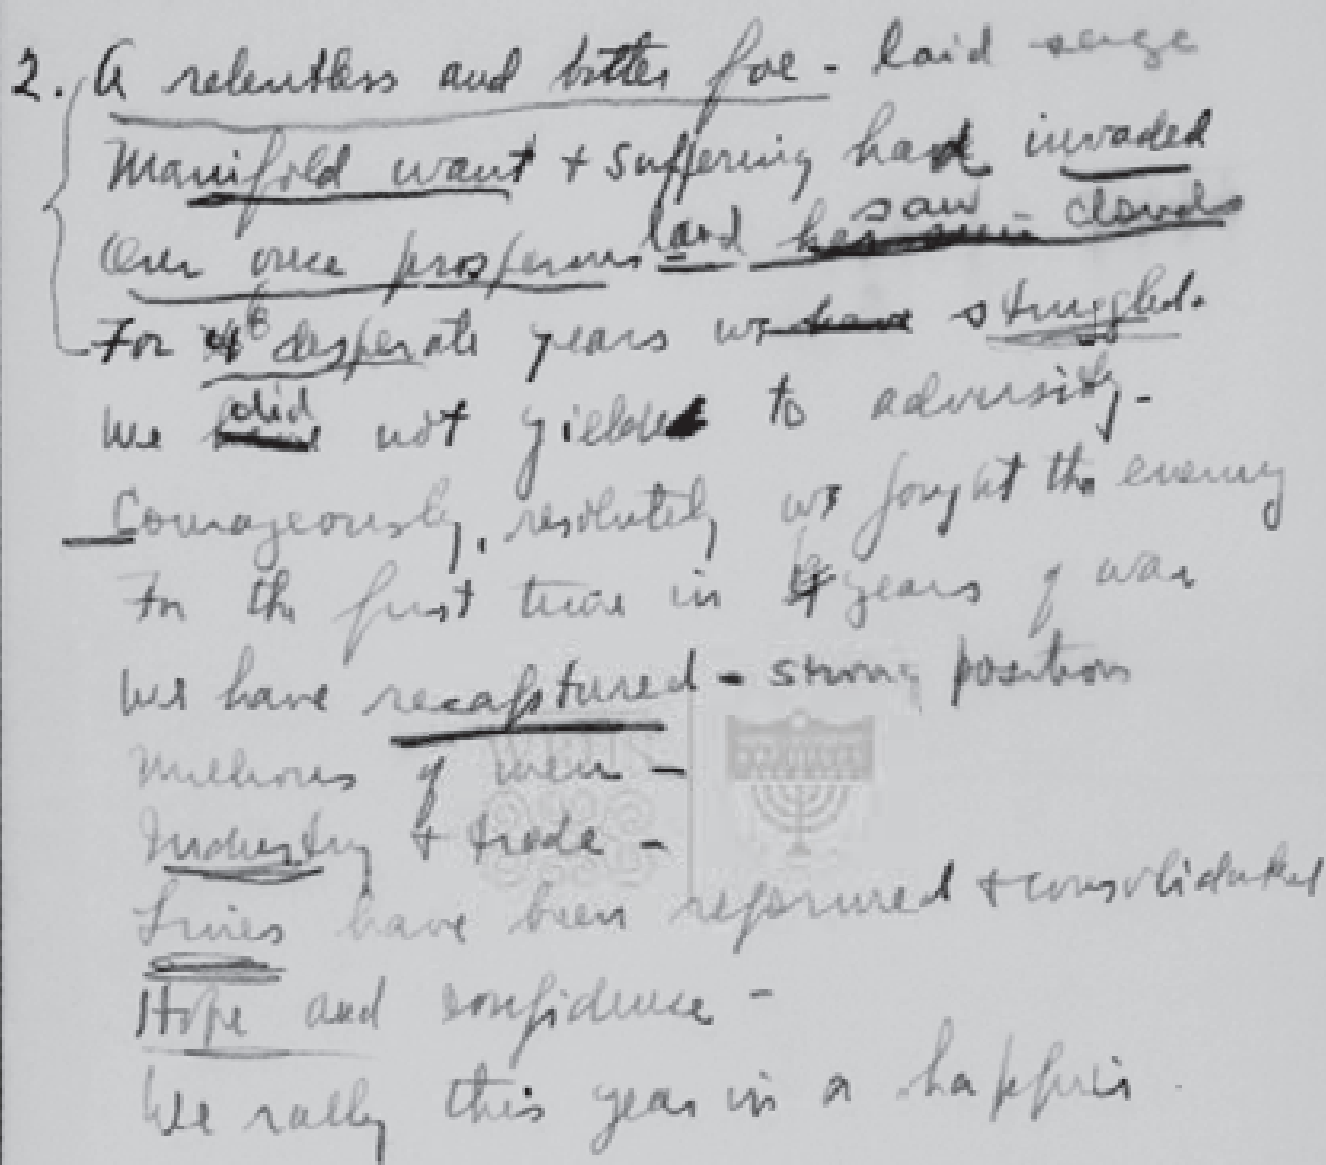 2. A relentless and bitter foe - laid seige
Manifold want + suffering had invaded
Our once prosperous land saw clouds
For 6 desperate years we have struggled.
We did not yield to adversity.
Courageously, resolutely we fought the enemy
For the first time in years of war
We have recaptured - strong positions
Millions of men -
Industry + trade -
Lines have been reformed + consolidated
Hope and confidence -
We rally this year in a happier